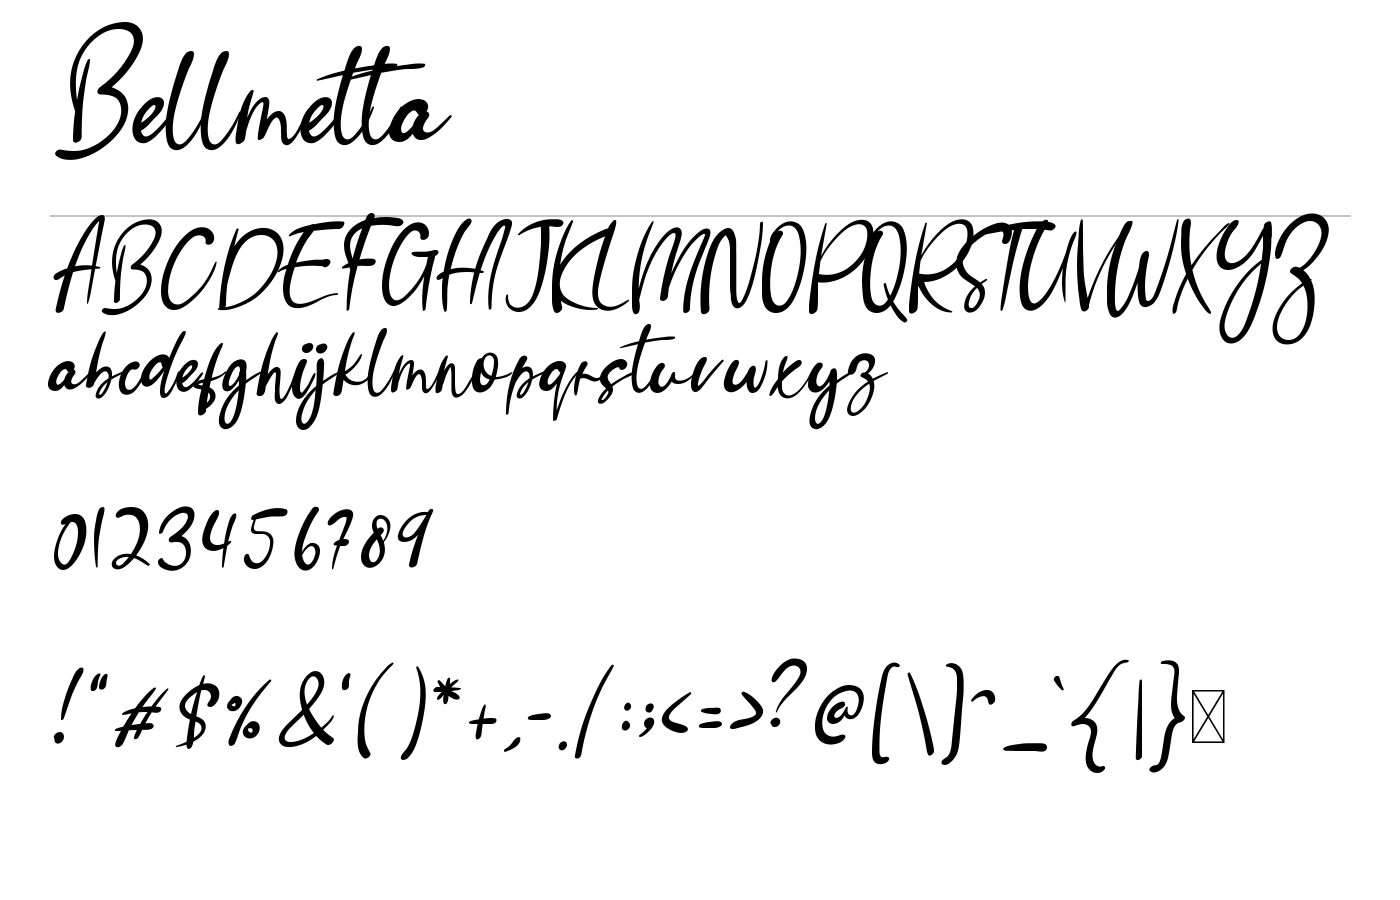 Bellmetta
ABCDEFGHIJKLMNOPQRSTUVWXYZ
abcdefghijklmnopqrstuvwxyz
0123456789
!"#$%&'()*+,-./:;<=>?@[\]^_`{|}